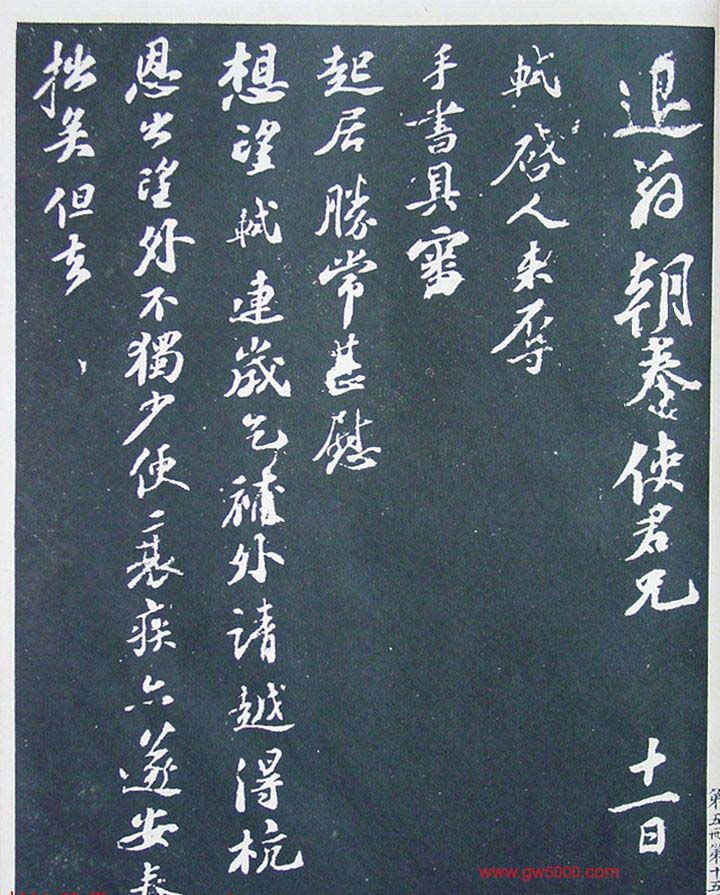 退翁朝奉使君兄 十一日
軾啓人来辱
手書具審
起居勝常甚慰
想望軾連歲乞補外請越得杭
恩出望外不獨少便衰疾亦遂安養
拙矣但去
第五冊第十
www.gw5000.com